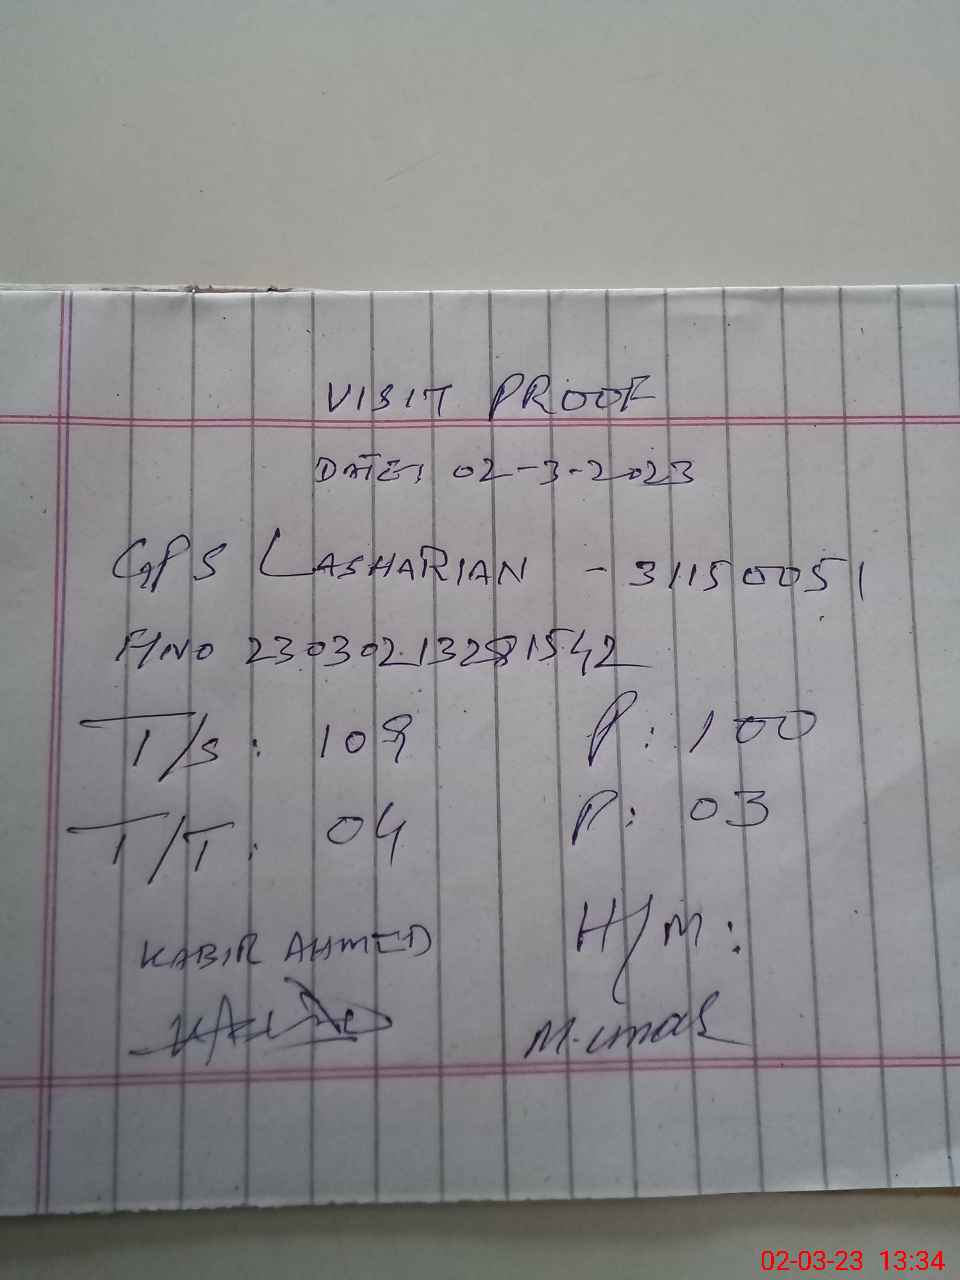 VISIT PROOF
DATE: 02-3-2023
GPS LASHARIAN - 31150051
F/NO 23030213281542
T/S: 109 P: 100
T/T: 04 P: 03
KABIR AHMED H/M:
M. Umar
02-03-23 13:34